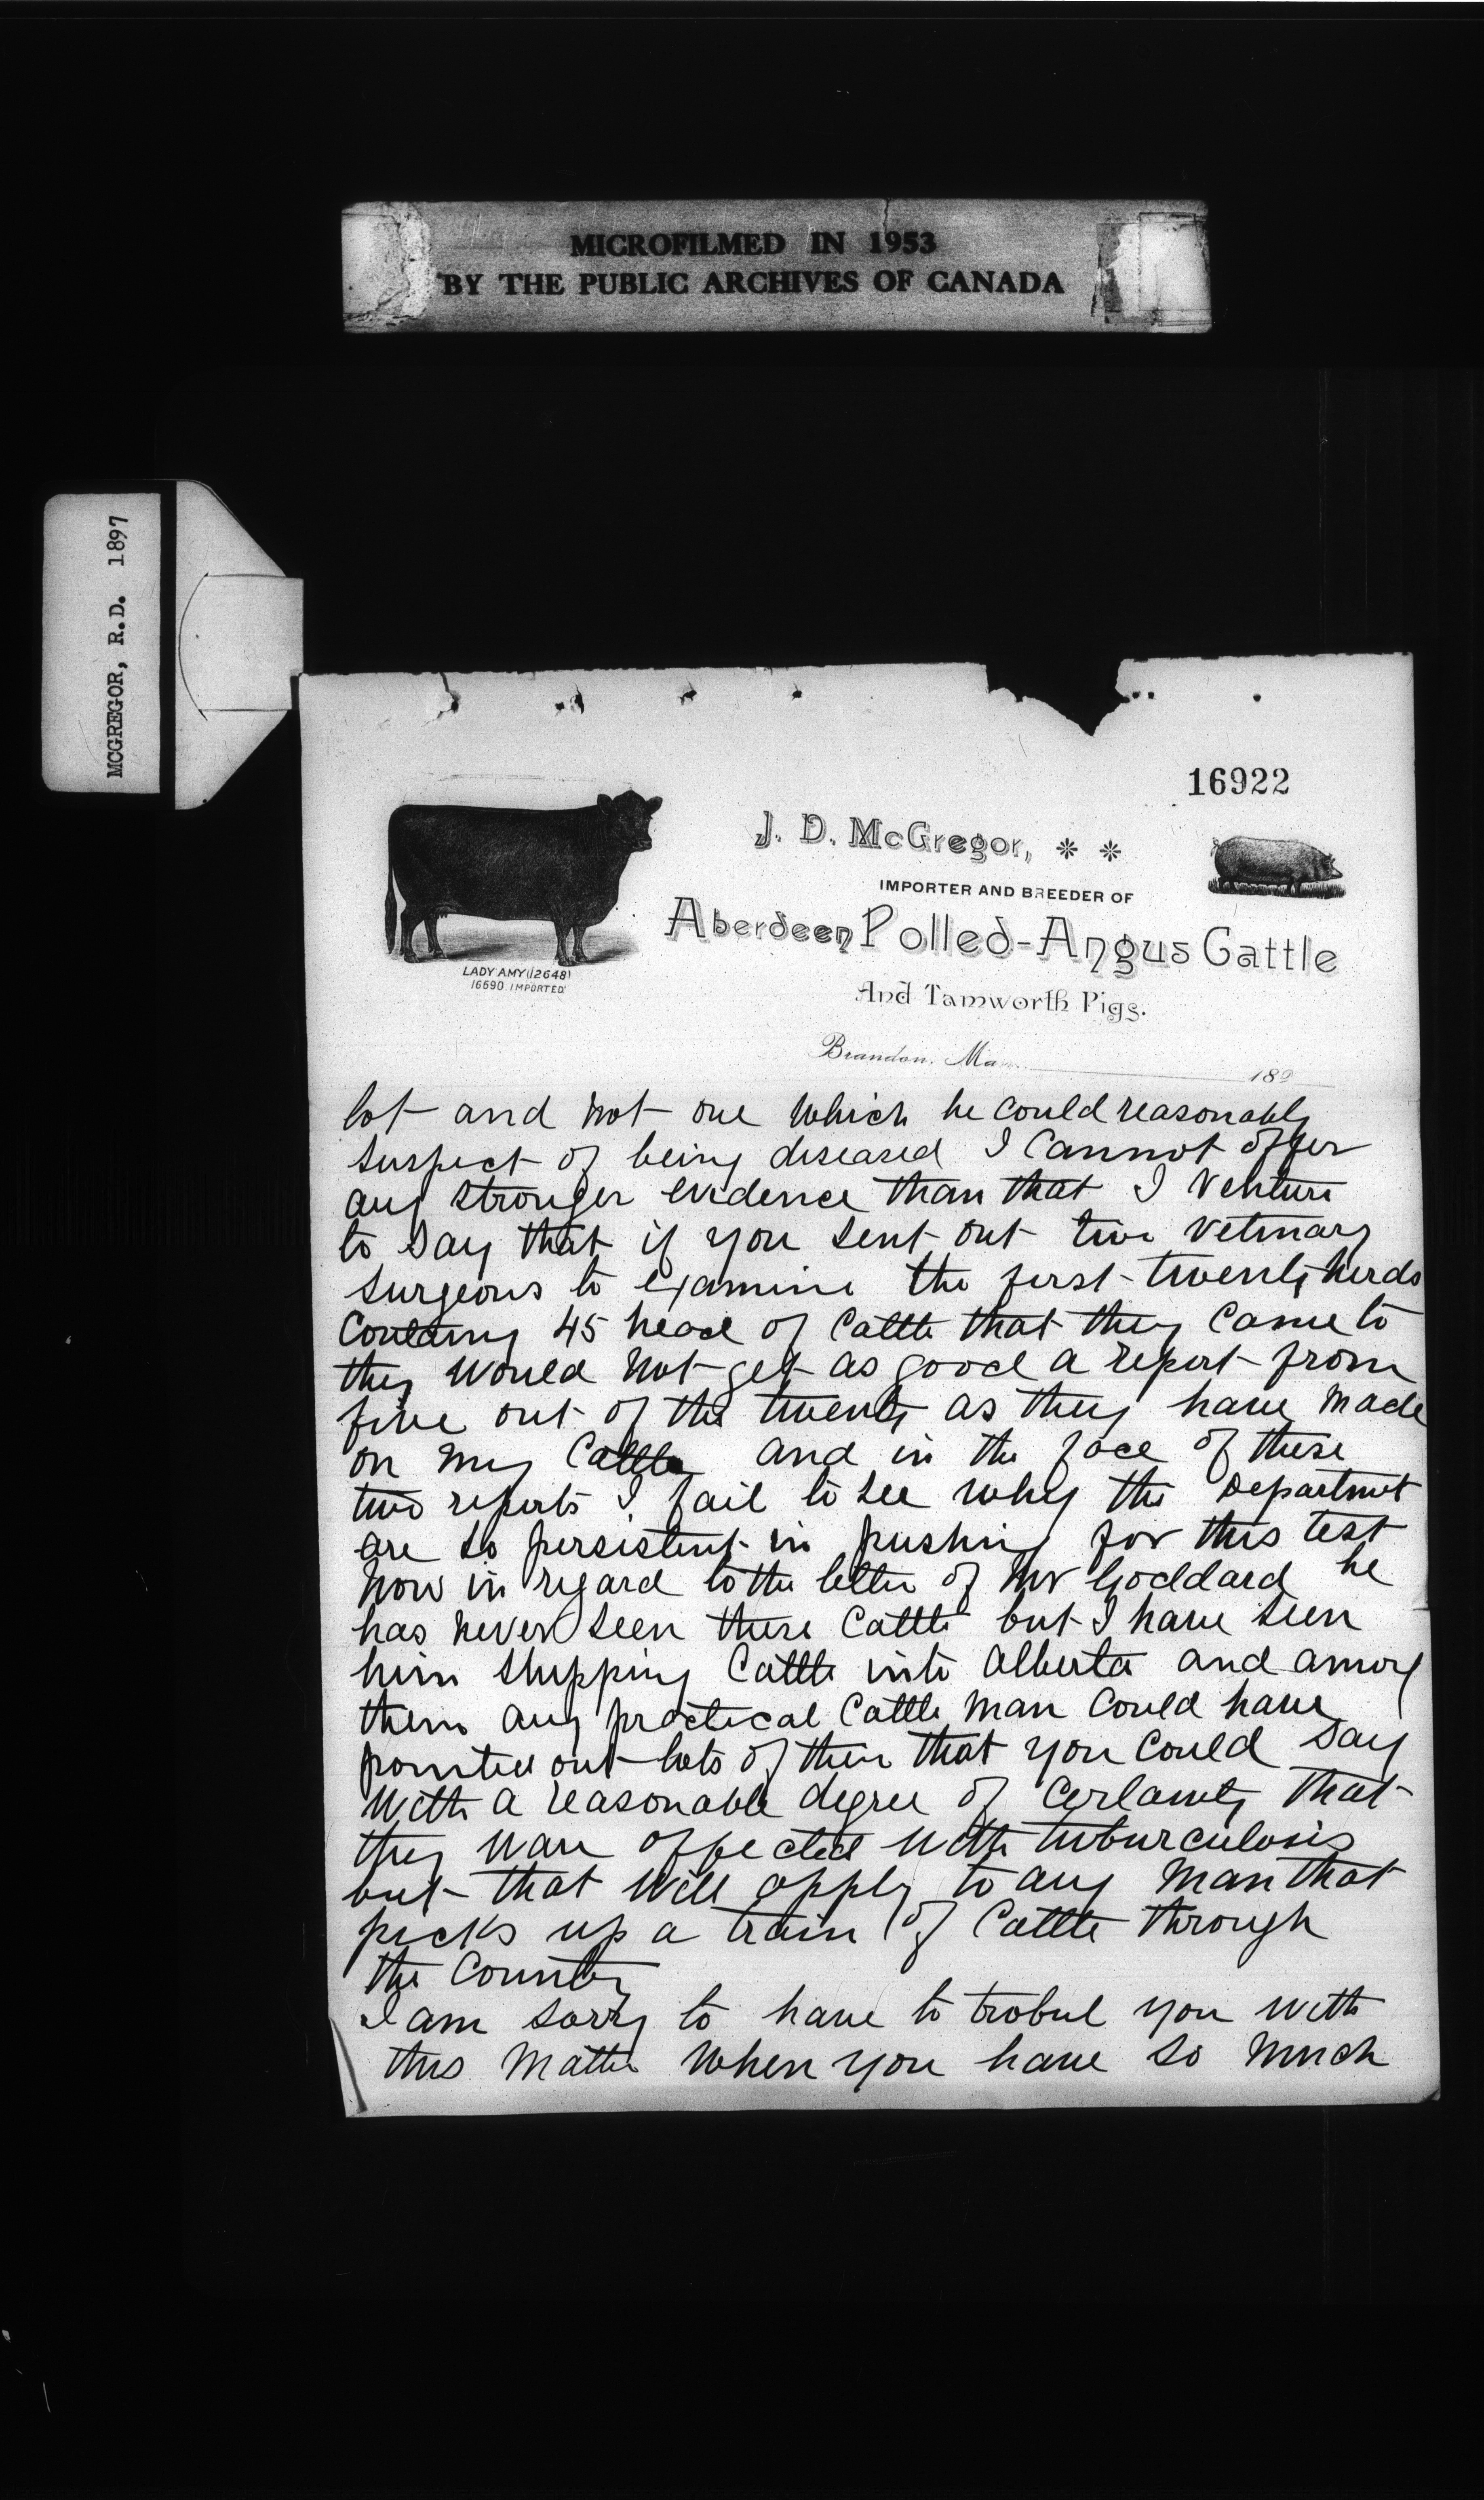 MICROFILMED IN 1953
BY THE PUBLIC ARCHIVES OF CANADA
MCGREGOR, R.D. 1897
16922
J. D. McGregor,
IMPORTER AND BREEDER OF
Aberdeen Polled-Angus Cattle
And Tamworth Pigs.
LADY AMY (12648)
16690 IMPORTED
Brandon, Ma 189
lot and not one which he could reasonably
suspect of being diseased I cannot offer
any stronger evidence than that I venture
to say that if you sent out two vetinary
surgeons to examine the first twenty herds
45 head of Cattle that they came to
they would not get as good a report from
five out of the twenty as they have made
on my Cattle and in the face of these
two reports I fail to see why the Departmet
are so persistent in pushing for this test
Now in regard to the letter of Mr Goddard he
has never seen these Cattle but I have seen
him shipping Cattle into Alberta and among
them any practical Cattle man could have
pointed out lots of them that you could say
with a reasonable degree of certainty that
they ware affected with tuburculosis
but that will apply to any man that
picks up a train of Cattle through
the Country
I am sorry to have to trobul you with
this matter when you have so much